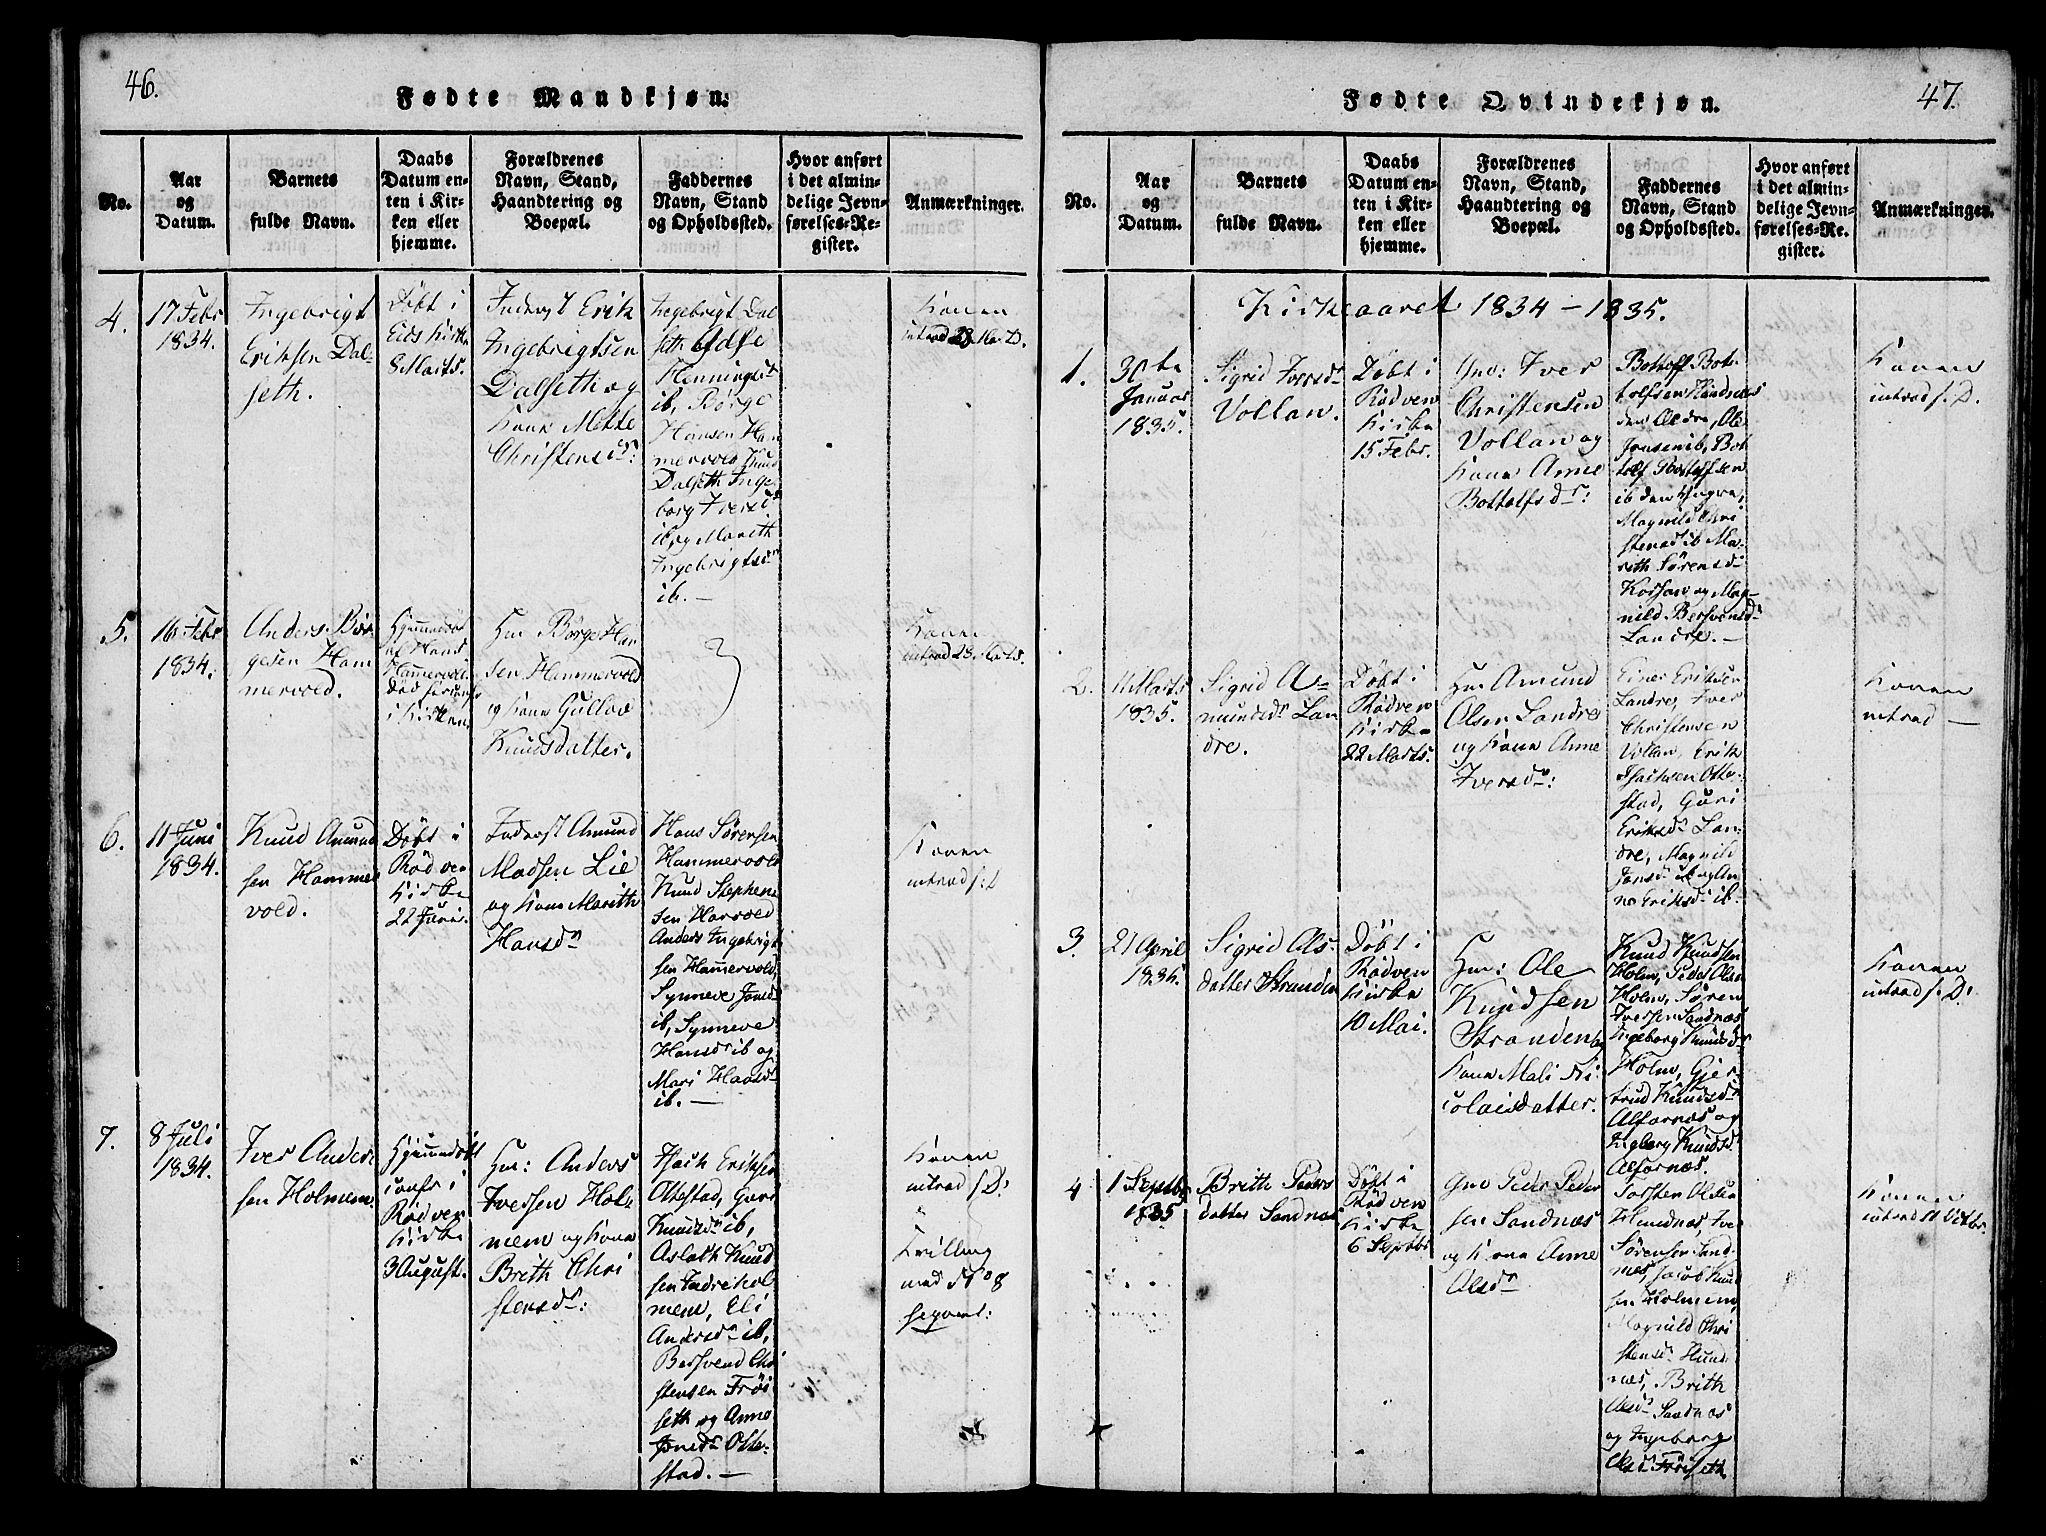 46.
Fødte Mandkjøn.
No.
Aar
og
Datum.
Barnets
fulde Navn.
Daabs
Datum en-
ten i Kir-
ken eller
hjemme.
Forældrenes
Navn, Stand,
Haandtering og
Boepæl.
Faddernes
Navn, Stand
og Opholdssted.
Hvor anført
i det almin-
delige Jevn-
førelses-Re-
gister.
Anmærkninger.
4.
17 Febr
1834.
Ingebrigt
Eriksen Dal-
seth.
Döbt i
Eids Kirke
8 Marts.
Inderst Erik
Ingebrigtsen
Dalseth og
Kone Mette
Christensdr:
Ingebrigt Dal
seth
Henningsdr
ib, Börge
Hansen Ham
mervold, Knud
Dalseth, Inge
borg Iversd
ib, og Marith
Ingebrigtsdr
ib. —
Konen
introd
5.
16 Febr
1834.
Anders Bör-
gesen Ham
mervold.
Hjemmedöbt
af Hans
Hammervold.
i Kirken
Hr Börge Han
sen Hammervold
og Kone Gullov
Knudsdatter.
Konen
introd 23. Marts.
6.
11 Juni
1834.
Knud Amund
sen Hammer
vold.
Döbt i
Rödven
Kirke
22 Juni.
Inderst Amund
Madsen Lie
og Kone Marith
Hansdr
Hans Sörensen
Hammervold
Knud Stephen
sen Harvold
Anders Ingebrigt
sen Hammervold,
Synneve Jonsd
ib, Synneve
Hansdr ib og
Mari Hansdr
ib. —
Konen
introd s: D
7.
8 Juli
1834.
Iver Anders
sen Holmem
Hjemmedöbt
confr i
Rödven
Kirke
3 August.
Hr: Anders
Iversen Hol
mem og Kone
Brith Chri
stensdr:
Isach Eriksen
Ottestad, Guri
Knudsdr ib,
Aslak Knud
sen Indrehol
mem, Eli
Andersdr ib,
Bersvend Chri
stensen Fröi
seth og Anne
Jonsdr Otte-
stad. —
Konen
introd s: D:
Tvilling
med No 8
47.
Fødte Qvindekjøn.
No.
Aar
og
Datum.
Barnets
fulde Navn.
Daabs
Datum en-
ten i Kir-
ken eller
hjemme.
Forældrenes
Navn, Stand,
Haandtering og
Boepæl.
Faddernes
Navn, Stand
og Opholdssted.
Hvor anført
i det almin-
delige Jevn-
førelses-Re-
gister.
Anmærkninger.
Kirkeaaret 1834 — 1835.
1.
30te
Januar
1835.
Sigrid Iversdr
Vollan.
Döbt i
Rödven
Kirke
15 Febr.
Gm: Iver
Christensen
Vollan og
Kone Anne
Bottolfsdr:
Bottolf Bot-
tolfsen Hundnæs
den Ældre, Ole
Jonsen ib, Bot
tolf Bottolfsen
ib den Yngre,
Magnild Chri
stensd ib Ma-
reth Sörensd
Korsan og Mag-
nild Bersvensdr
Landre. —
Konen
introd s: D.
2.
11 Marts
1835.
Sigrid A-
mundsdr Lan
dre.
Döbt i
Rödven
Kirke
22 Marts.
Hr Amund
Olsen Landre
og Kone Anne
Iversdr:
Einer Eriksen
Landre, Iver
Christensen
Vollan, Erik
Isachsen Otte-
stad, Guri
Eriksdr Lan-
dre, Magnild
Jonsdr ib og An
ne Eriksdr ib.
Konen
introd —
3.
21 April
1835.
Sigrid Ols-
datter Stranden
Döbt i
Rödven
Kirke
10 Mai.
Hr: Ole
Knudsen
Stranden og
Kone Mali Ni-
colaisdatter.
Knud Knudsen
Holm, Peder Olsen
Holm, Sören
Iversen Sandnæs
Ingeborg Knudsdr
Holm, Gjer-
trud Knudsdr
Alfarnæs og
Ingborg Knudsd
Alfarnæs.
Konen
introd s: D:
4
1 Septbr
1835
Brith Peders
datter Sandnæs
Döbt i
Rödven
Kirke
6 Septbr
Gm Peder Peder
sen Sandnæs
og Kone Anne
Olsdr
Torsten Olsen
Hundnæs, Iver
Sörensen Sand-
næs, Jacob Knud
sen Holmem,
Magnild Chri
stensdr Hund
næs, Brith
Olsdr Sandnæs
og Ingeborg
Olsd Fröiseth
Konen
introd 11 Octbr.